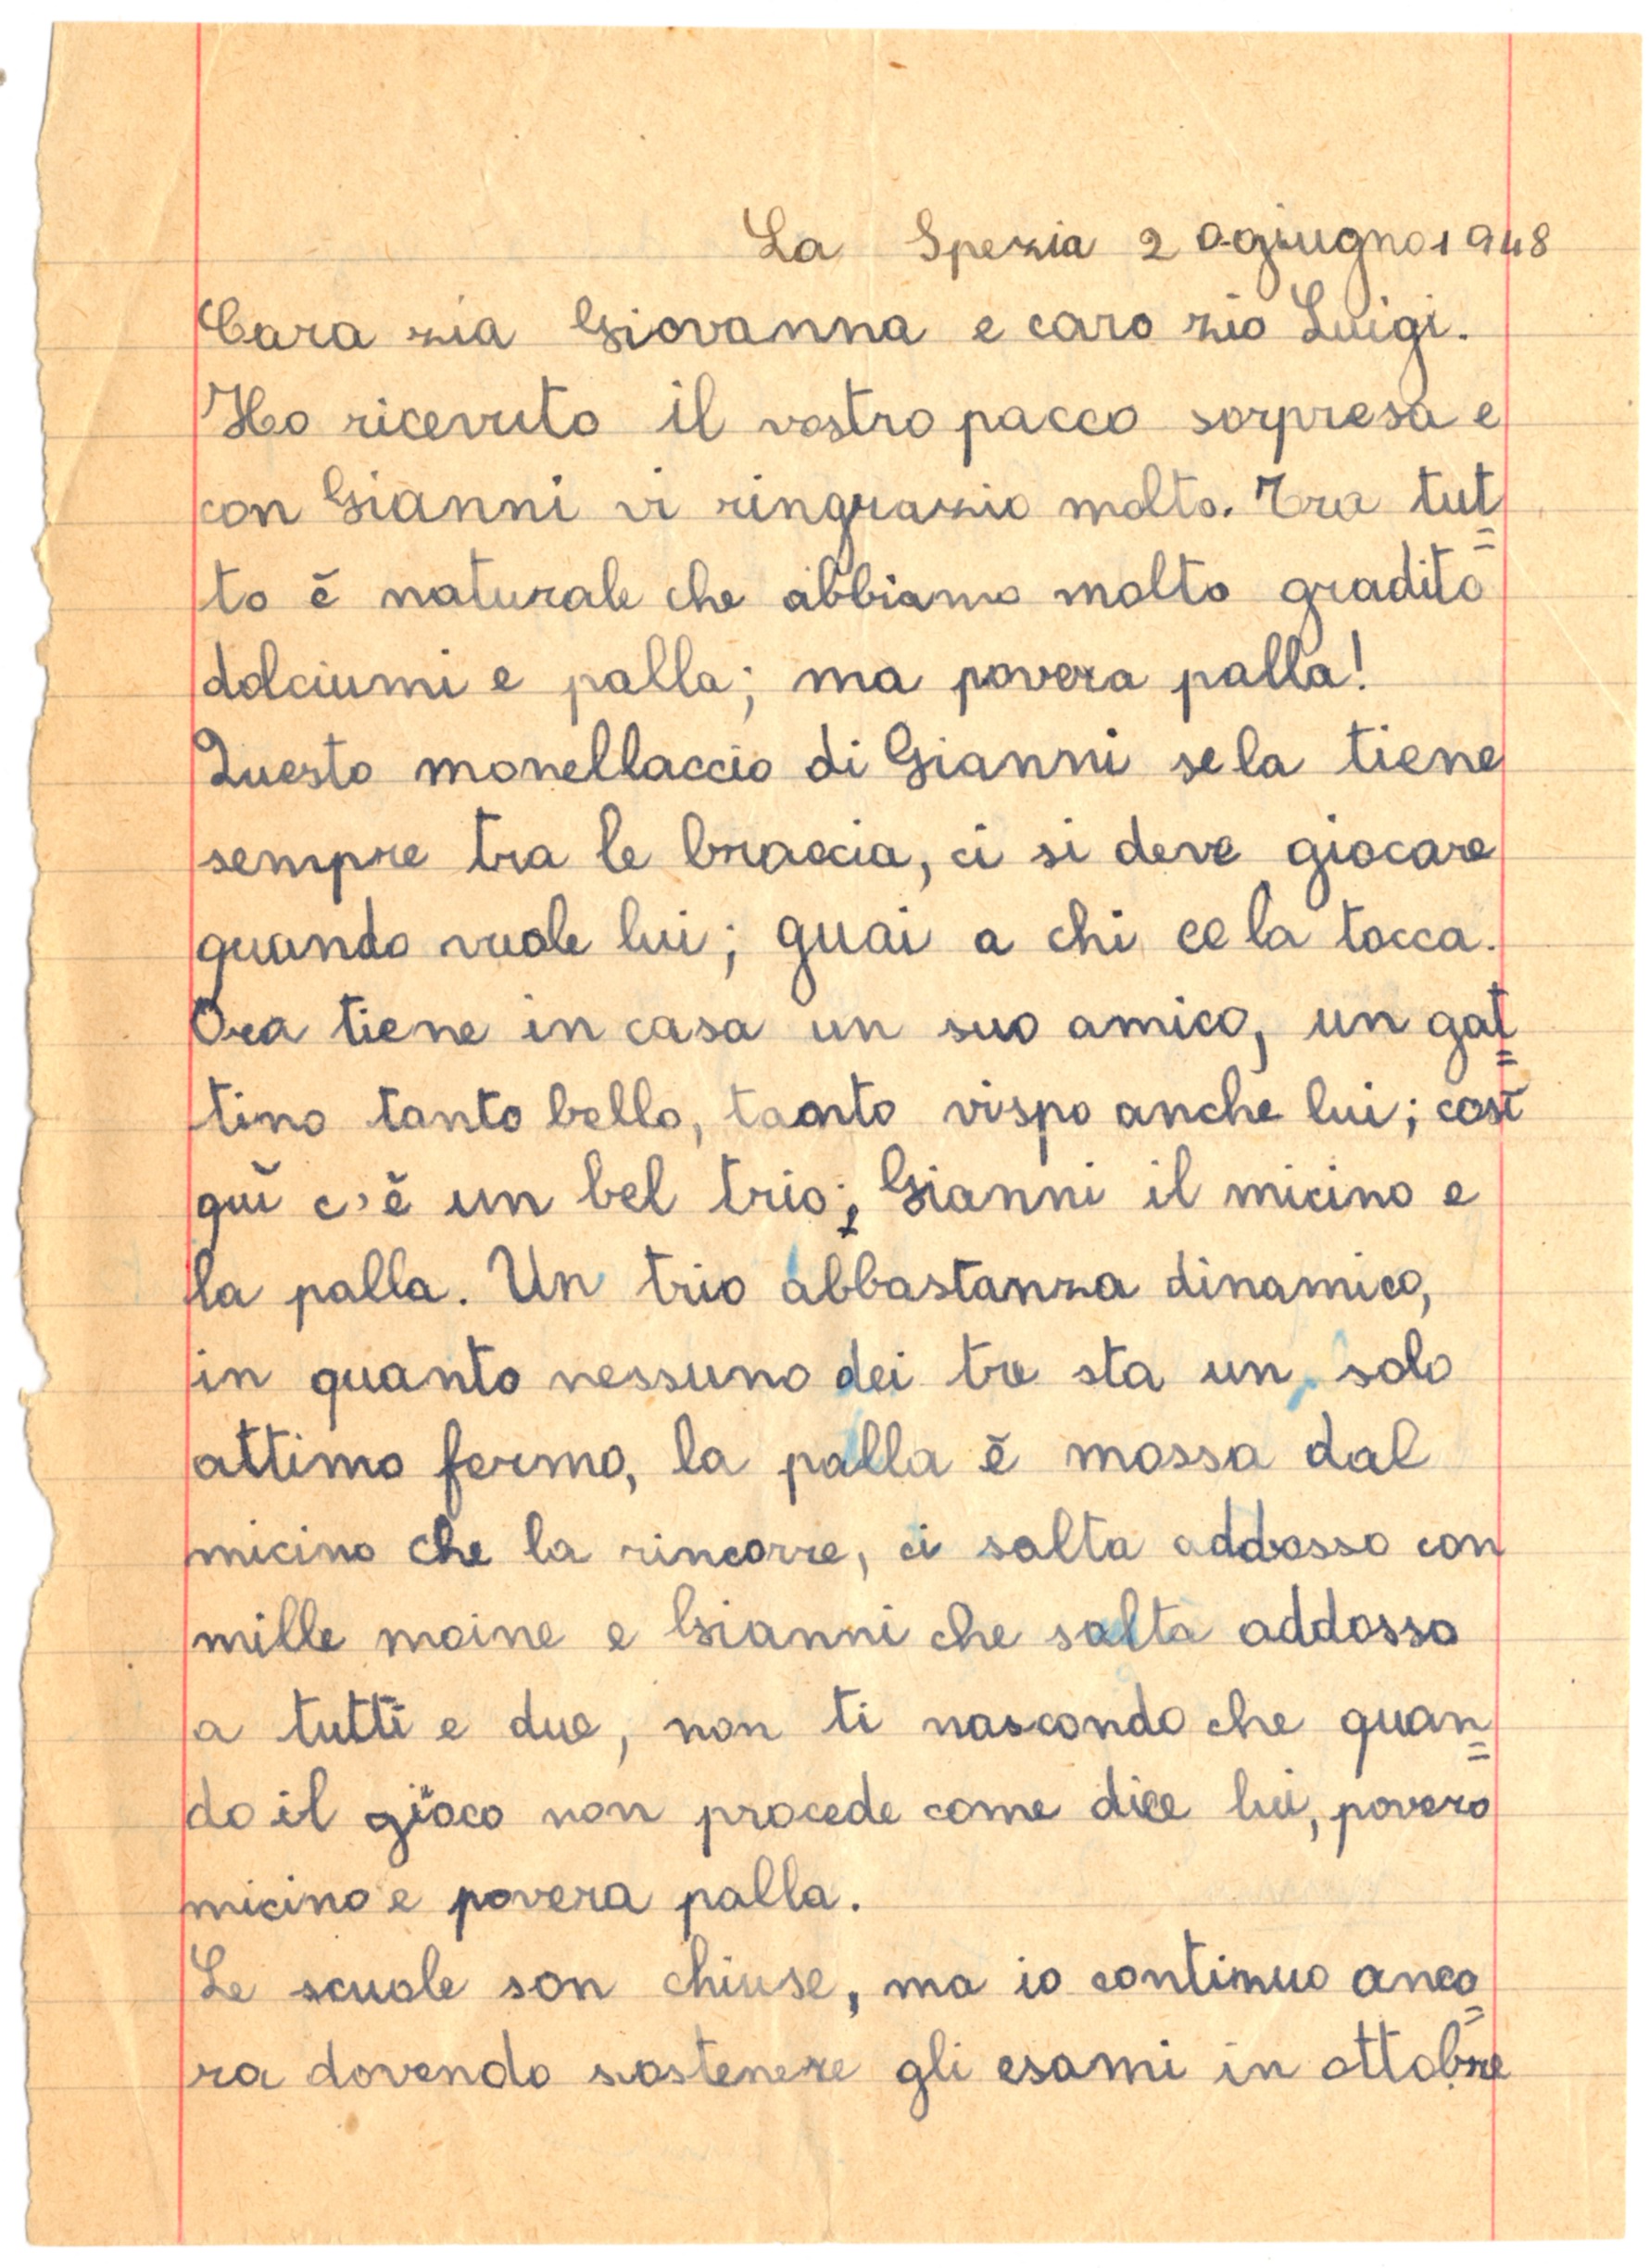 La Spezia 20 giugno 1948
Cara zia Giovanna e caro zio Luigi.
Ho ricevuto il vostro pacco sorpresa e
con Gianni vi ringrazio molto. Tra tut=
to è naturale che abbiamo molto gradito
dolciumi e palla; ma povera palla!
Questo monellaccio di Gianni se la tiene
sempre tra le braccia, ci si deve giocare
quando vuole lui; guai a chi ce la tocca.
Ora tiene in casa un suo amico, un gat=
tino tanto bello, taanto vispo anche lui; così
quì c'è un bel trio; Gianni il micino e
la palla. Un trio abbastanza dinamico,
in quanto nessuno dei tre sta un solo
attimo fermo, la palla è mossa dal
micino che la rincorre, ci salta addosso con
mille moine e Gianni che salta addosso
a tutti e due, non ti nascondo che quan=
do il gioco non procede come dice lui, povero
micino e povera palla.
Le scuole son chiuse, ma io continuo anco=
ra dovendo sostenere gli esami in ottobre